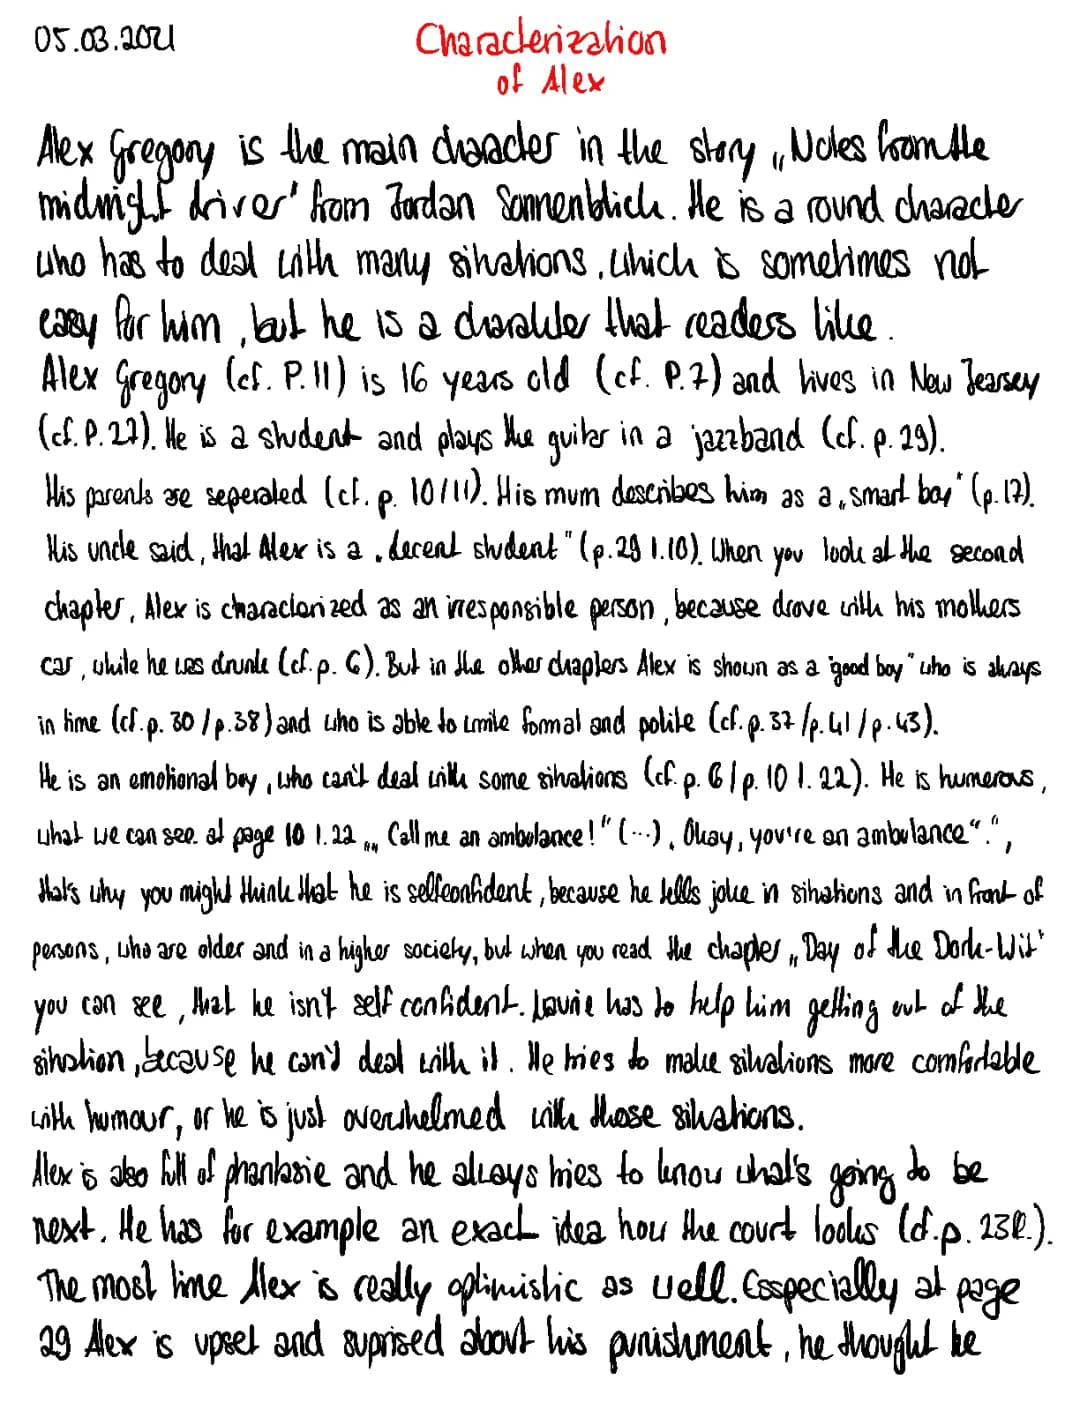 05.03.2021
Characterization
of Alex
Alex Gregory is the main character in the story „Notes from the
midnight driver" from Jordan Sonnenblick. He is a round character
who has to deal with many situations, which is sometimes not
easy for him, but he is a character that readers like.
Alex Gregory (cf. P. 11) is 16 years old (cf. P.7) and lives in New Jearsey
(cf. P. 27). He is a student and plays the guitar in a jazzband (cf. p. 29).
His parents are seperated (cf. p. 10/11). His mum describes him as a „smart boy" (p.17).
His uncle said, that Alex is a „decent student" (p.29 l.10). When you look at the second
chapter, Alex is characterized as an irresponsible person, because drove with his mothers
car, while he was drunk (cf. p. 6). But in the other chapters Alex is shown as a "good boy" who is always
in time (cf. p. 30 / p.38) and who is able to write formal and polite (cf. p. 37 / p.41 / p.43).
He is an emotional boy, who can't deal with some situations (cf. p. 6 / p. 10 l. 22). He is humerous,
what we can see at page 10 l.22 „„ Call me an ambulance!" (...) „Okay, you're an ambulance".",
that's why you might think that he is selfconfident, because he tells joke in situations and in front of
persons, who are older and in a higher society, but when you read the chapter „Day of the Dork-Wit"
you can see, that he isn't self confident. Laurie has to help him getting out of the
situation, because he can't deal with it. He tries to make situations more comfortable
with humour, or he is just overwhelmed with those situations.
Alex is also full of phantasie and he always tries to know what's going to be
next. He has for example an exact idea how the court looks (cf. p. 23f.).
The most time Alex is really optimistic as well. Esspecially at page
29 Alex is upset and suprised about his punishment, he thought he